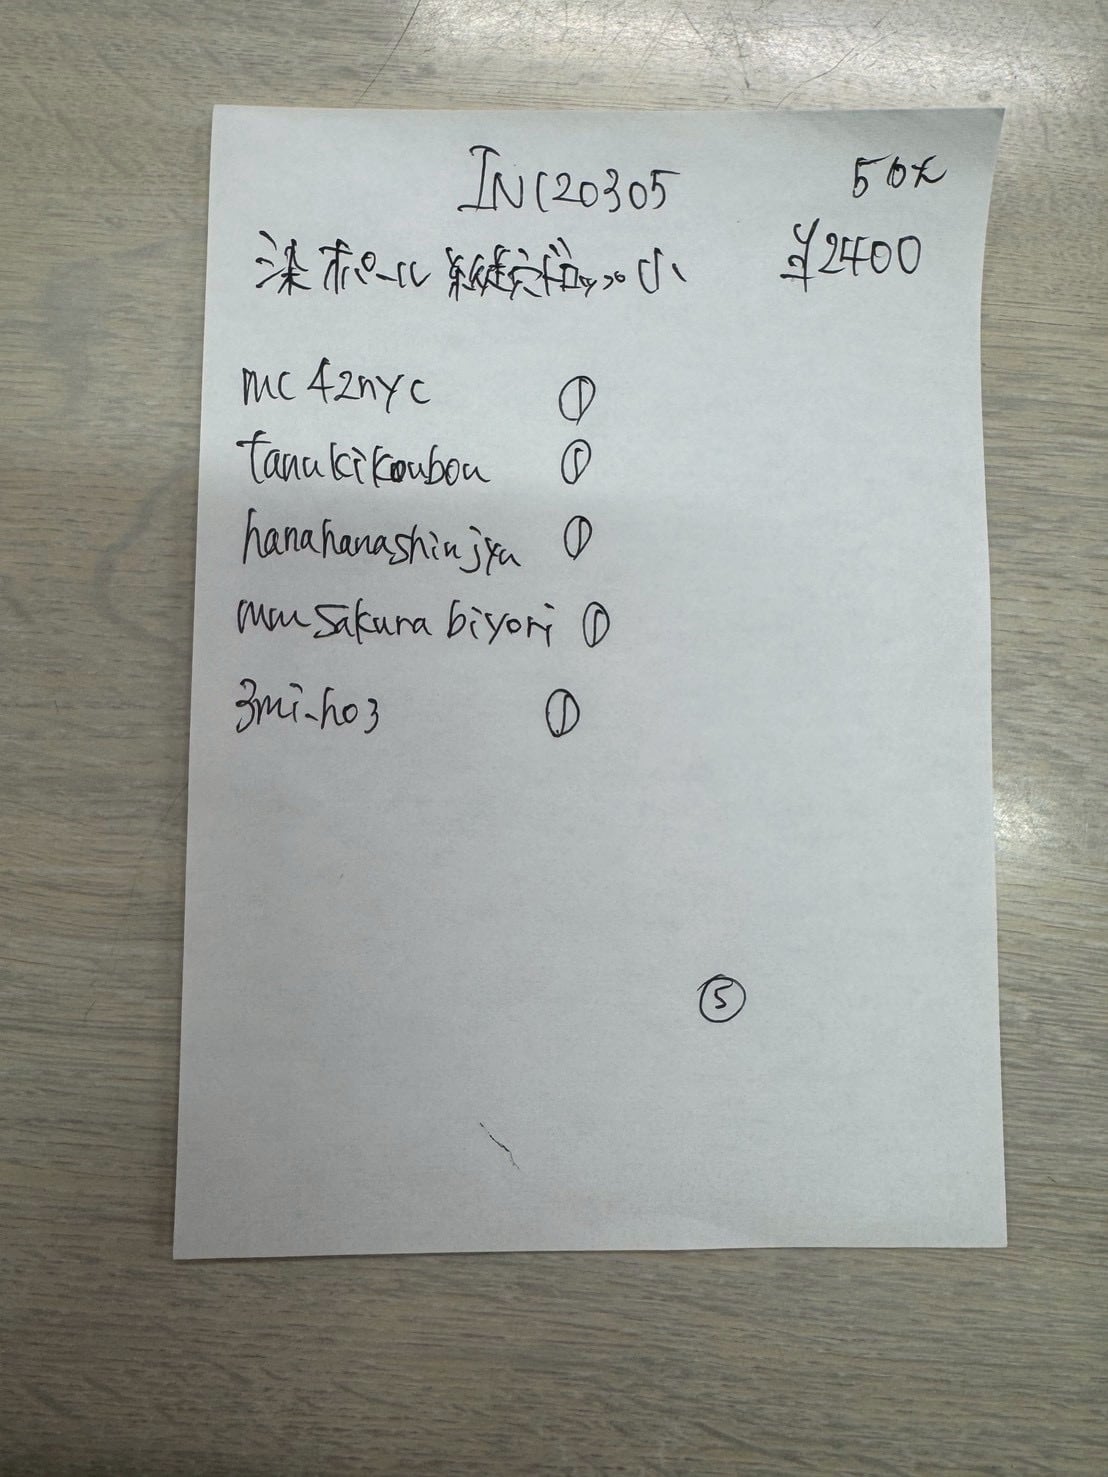 INC20305 50%
染ポール 小 ¥2400
mc42nyc ①
tanukikoubou ①
hanahanashinjyu ①
mmsakurabiyori ①
3mi-ho3 ①
⑤